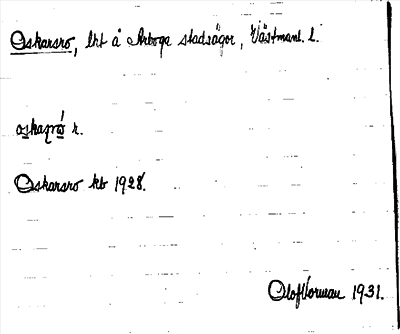 Oskarsro, lht å Arboga stadsägor, Västmanl. l.
oskaʂró r.
Oskarsro kb 1928.
Olof Norman 1931.